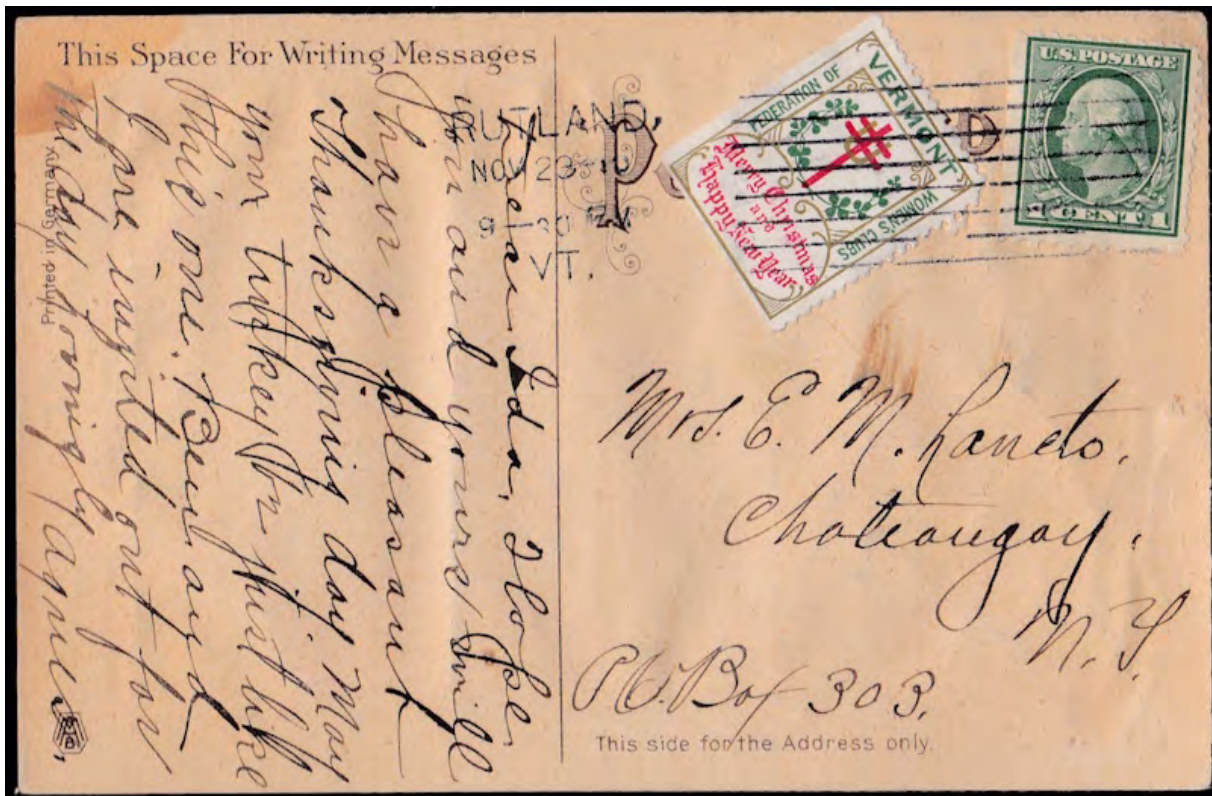 This Space For Writing Messages
Dear Ida, I hope
you and yours will
have a pleasant
Thanksgiving day. May
your turkey be just like
this one. Ben and
I are invited out for
the day. Lovingly Agnes.
Printed in Germany
RUTLAND,
NOV 23
VT.
FEDERATION OF
VERMONT
WOMEN'S CLUBS
Merry Christmas
and
Happy New Year
U.S. POSTAGE
1 CENT 1
Mrs. E. M.
Chateaugay,
N. Y.
P.O. Box 303.
This side for the Address only.